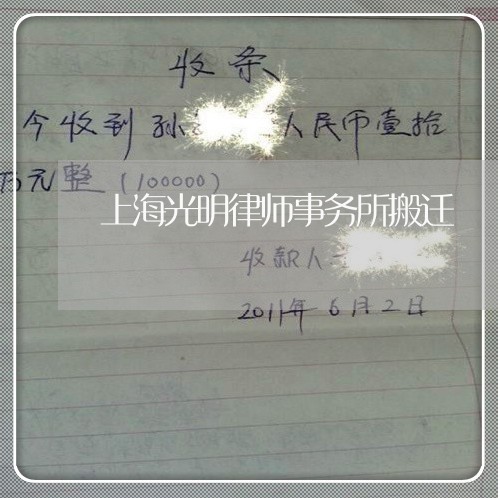 收条
今收到孙 人民币壹拾
万元整(100000)
上海光明律师事务所搬迁
收款人
2011年6月2日